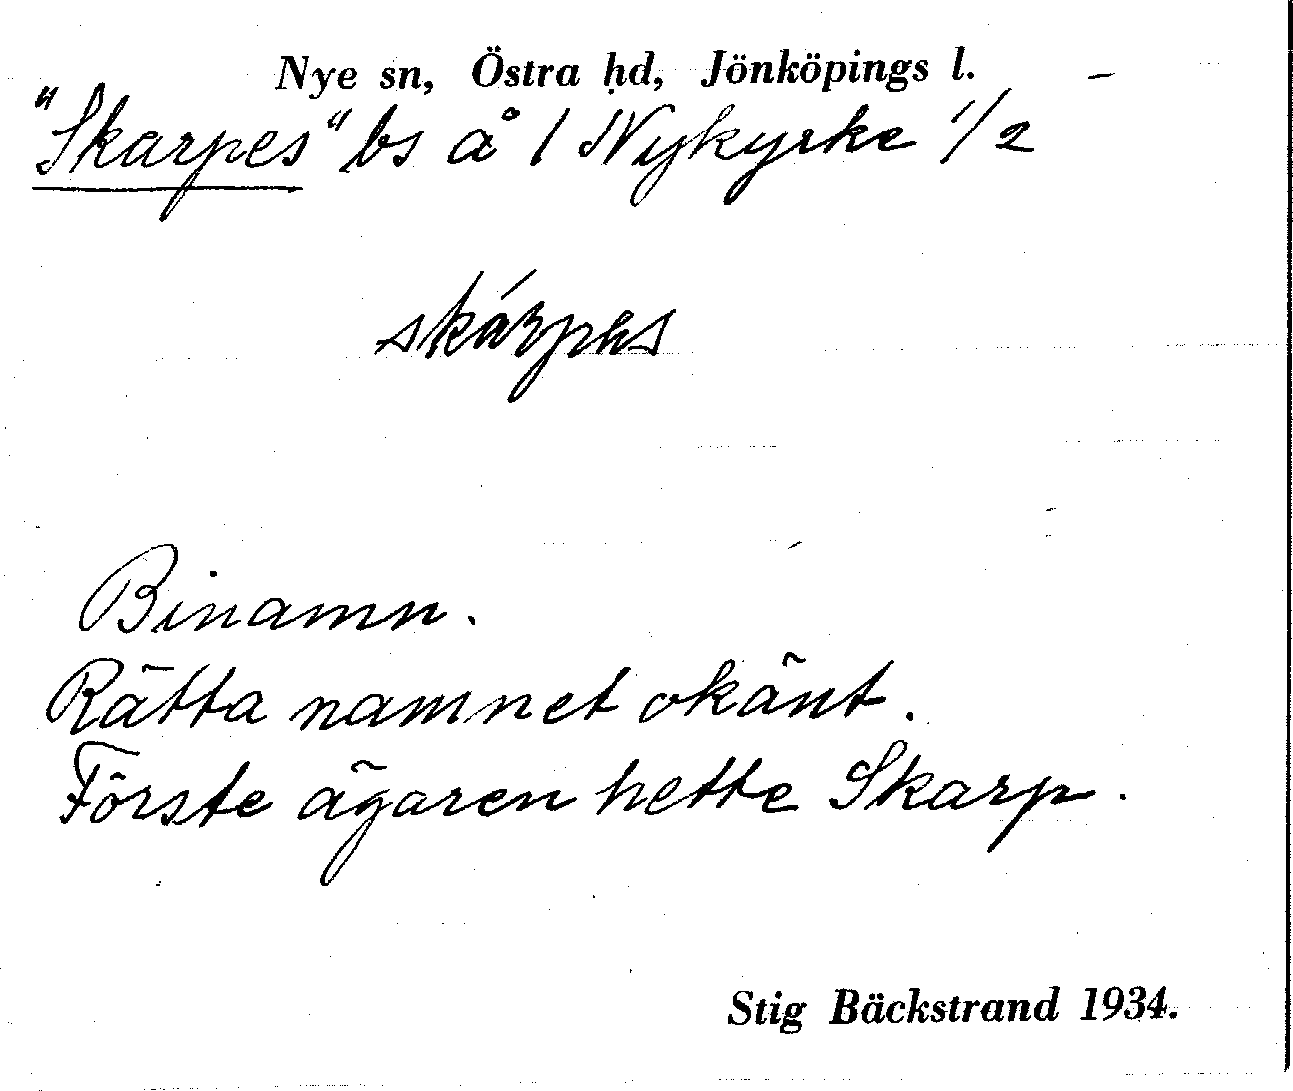 Nye sn, Östra hd, Jönköpings l.
"Skarpes" bs å 1 Nykyrke 1/2
skárpes
Binamn.
Rätta namnet okänt.
Förste ägaren hette Skarp.
Stig Bäckstrand 1934.